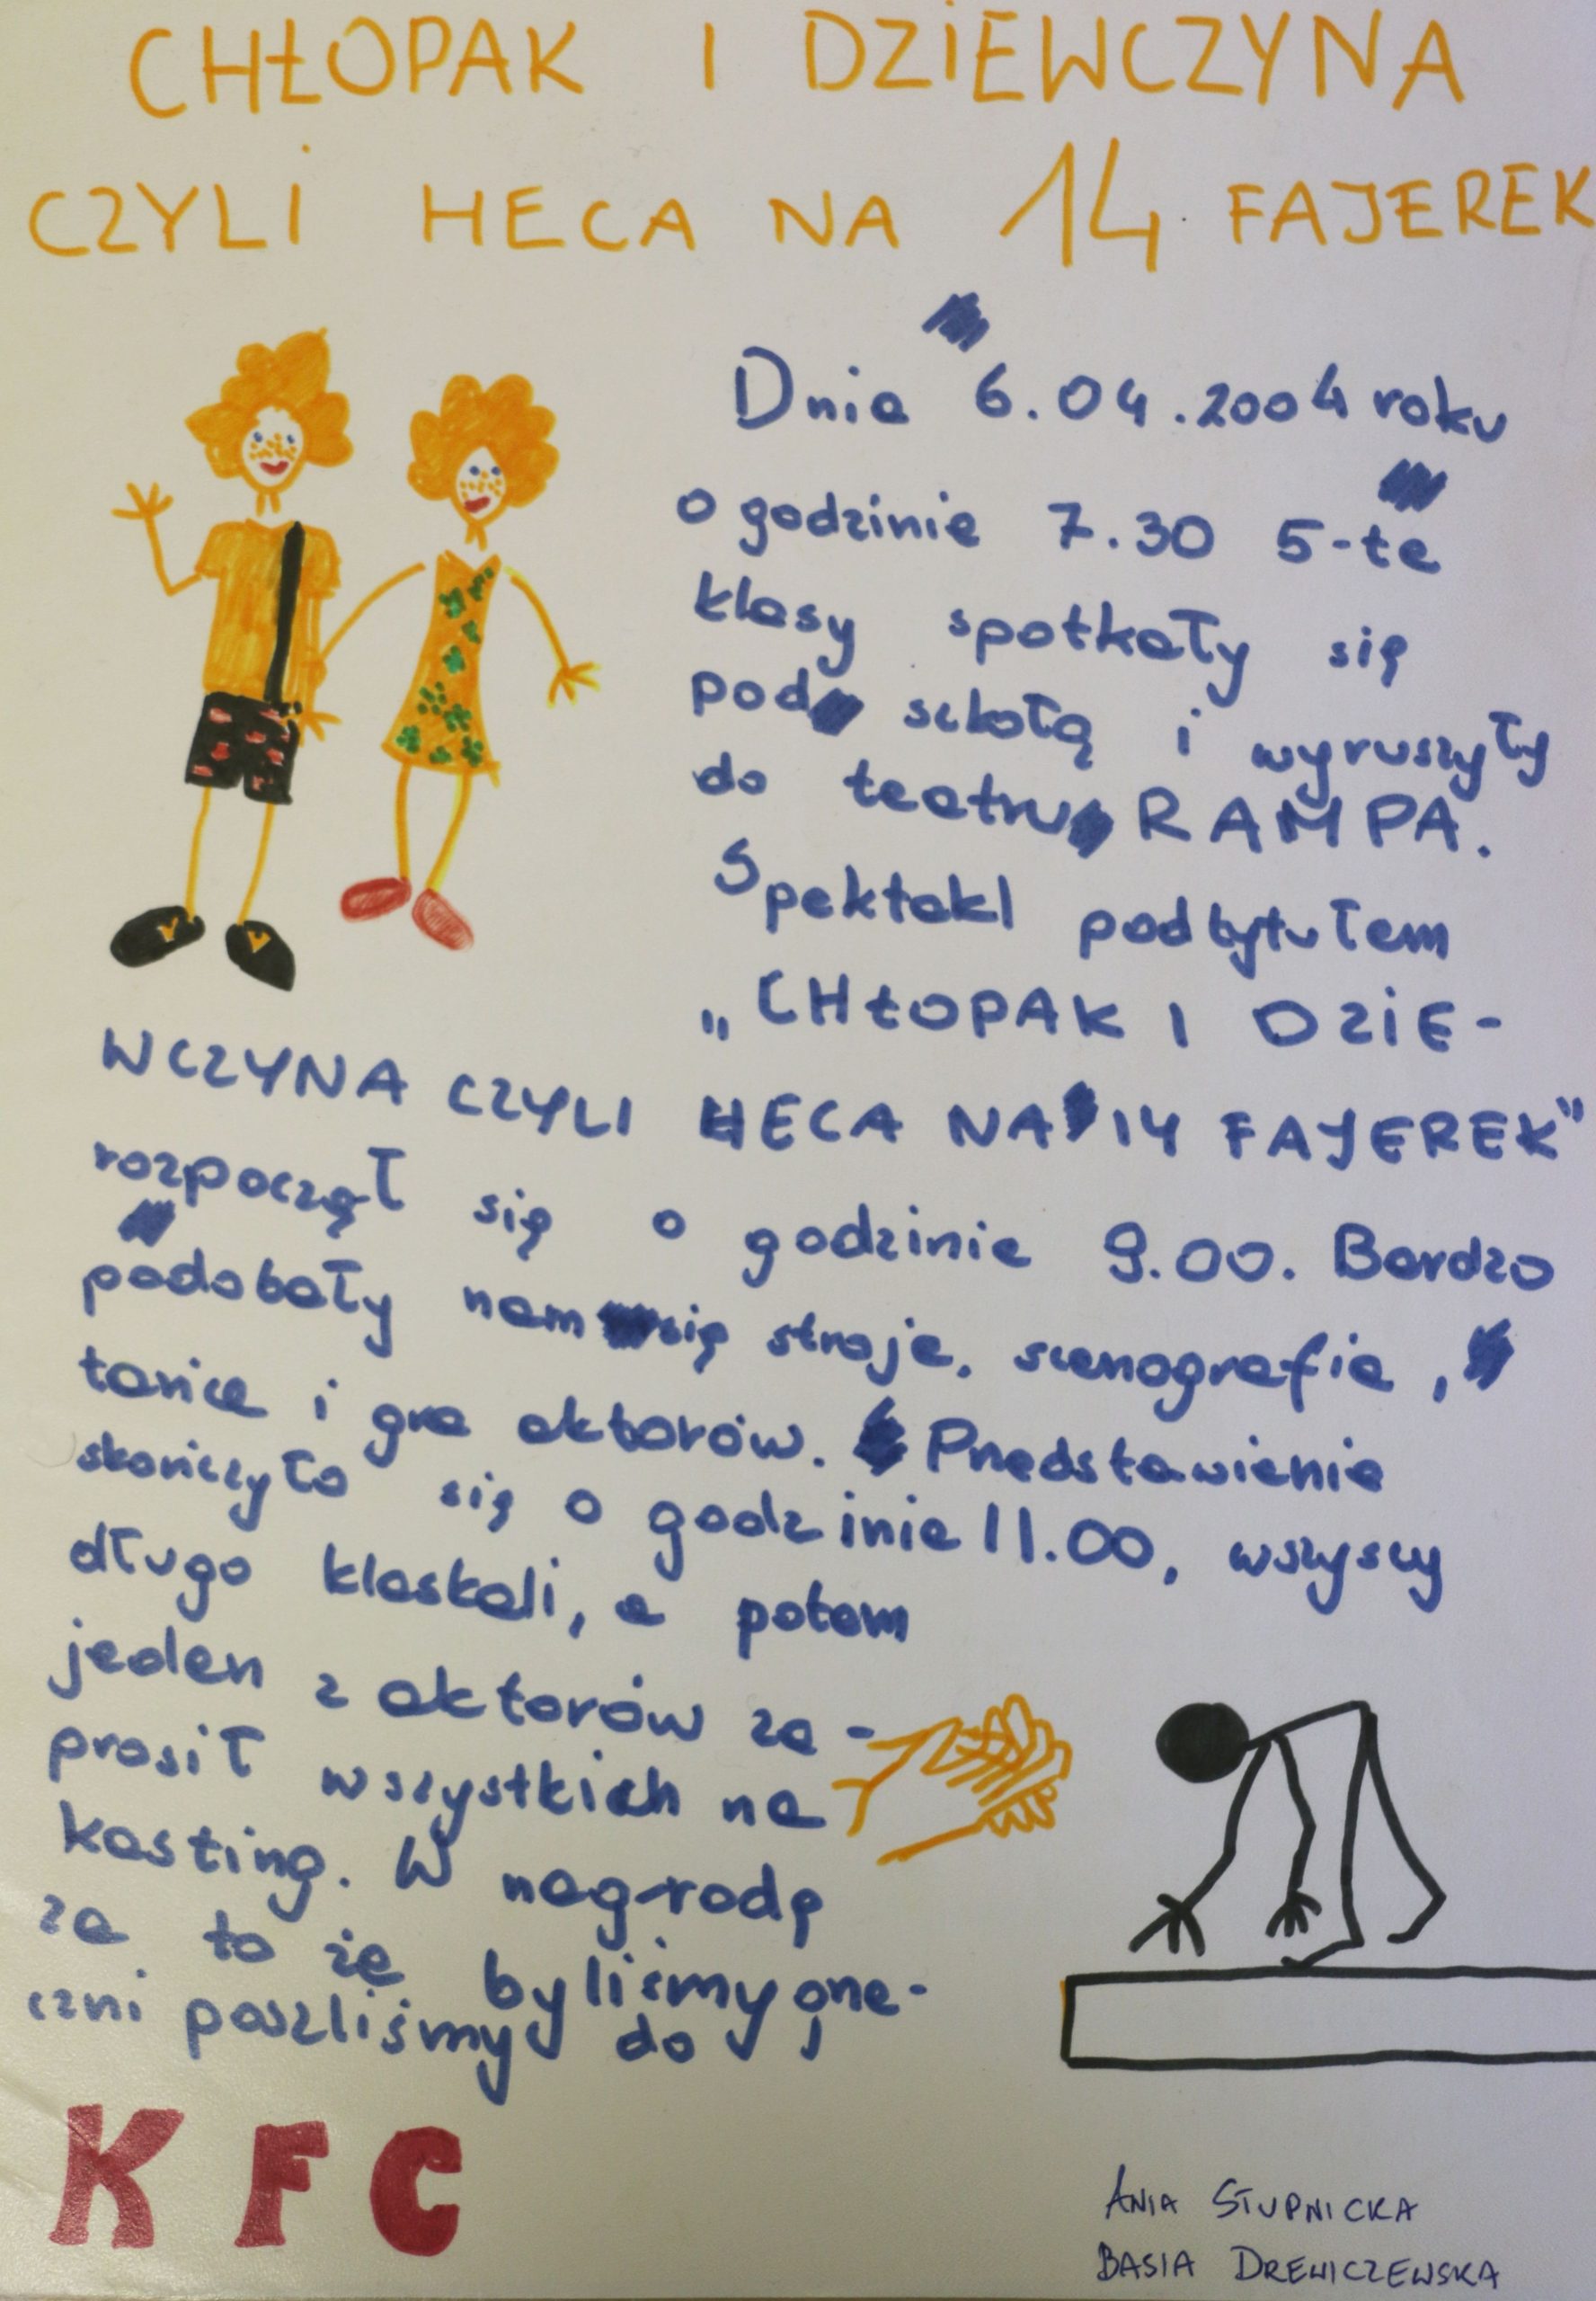 CHŁOPAK I DZIEWCZYNA
CZYLI HECA NA 14 FAJEREK
Dnia 6.04.2004 roku
o godzinie 7.30 5-te
klasy spotkały się
pod szkołą i wyruszyły
do teatru RAMPA.
Spektakl podtytułem
„CHŁOPAK I DZIE-
WCZYNA CZYLI HECA NA 14 FAJEREK"
rozpoczął się o godzinie 9.00. Bardzo
podobały nam się stroje, scenografia,
tańce i gra aktorów. Przedstawienie
skończyło się o godzinie 11.00, wszyscy
długo klaskali, a potem
jeden z aktorów za-
prosił wszystkich na
kasting. W nagrodę
za to że byliśmy grze-
czni poszliśmy do
KFC
ANIA STUPNICKA
BASIA DREWICZEWSKA